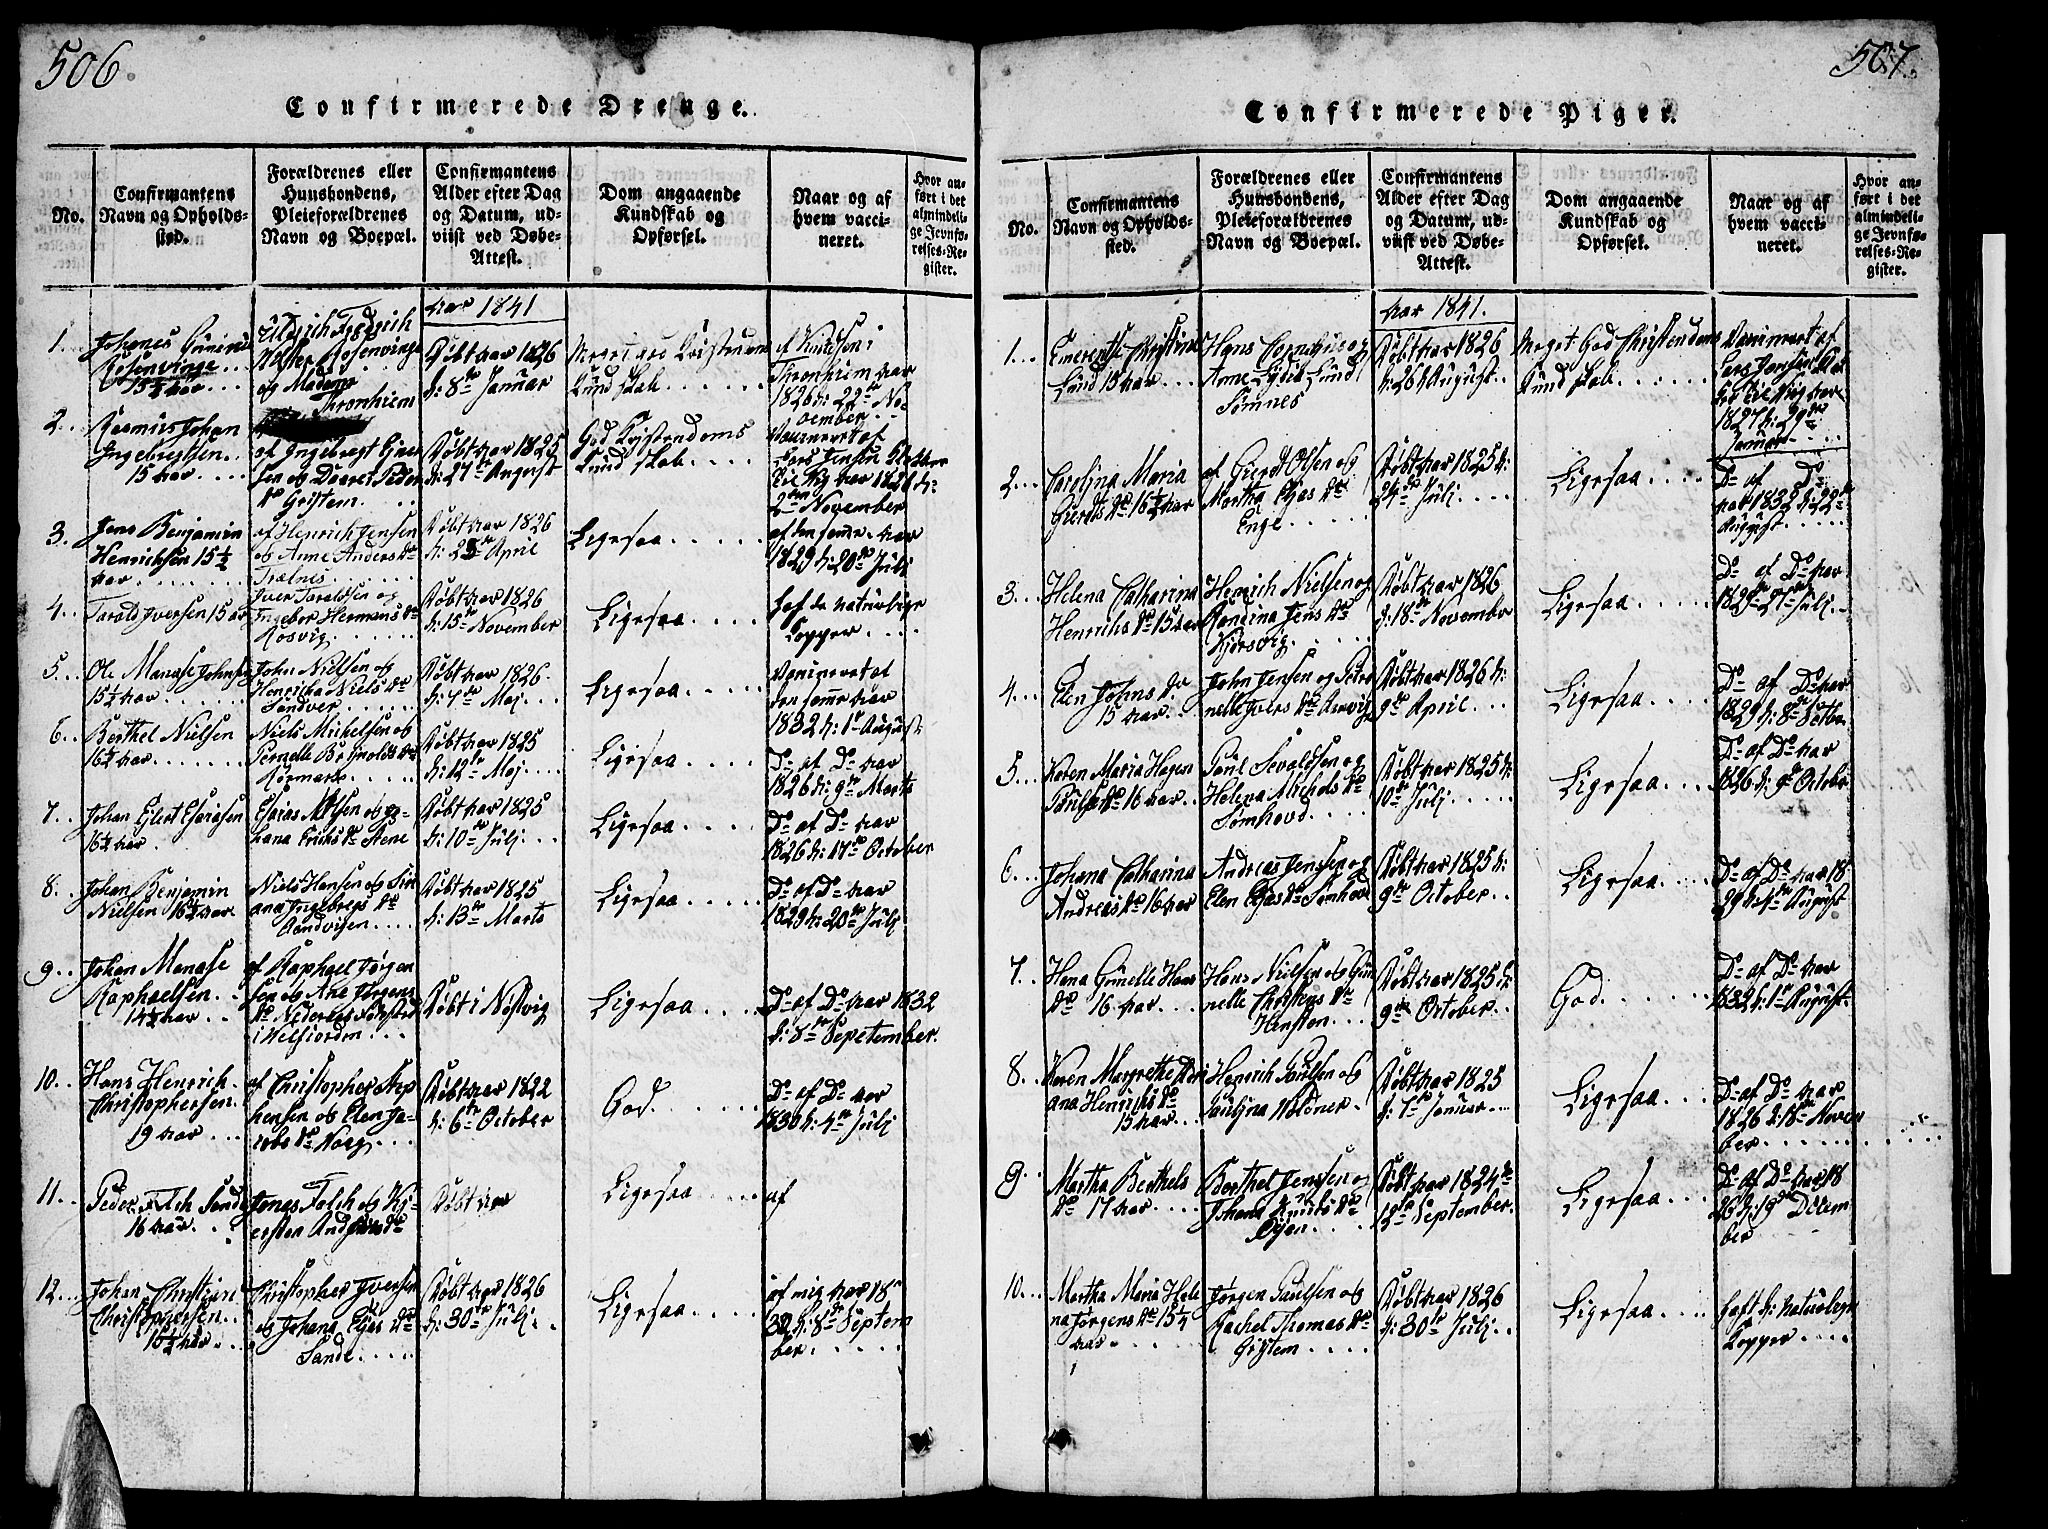 506
Confirmerede Drenge.
No.
Confirmantens
Navn og Opholds-
sted.
Forældrenes eller
Huusbondens,
Pleieforældrenes
Navn og Boepæl.
Confirmantens
Alder efter Dag
og Datum, ud-
viist ved Døbe-
Attest.
Dom angaaende
Kundskab og
Opførsel.
Naar og af
hvem vacci-
neret.
Hvor an-
ført i det
almindeli-
ge Jevnfø-
relses-Re-
gister.
Aar 1841
1.
Johanes
Rosenvinge
15½ Aar
Uldrich Fredrich
Rosenvinge
og Madame
Thronhiem
Døbt Aar 1826
d: 8de Januar
Kundskab
af Knudsen i
Thronhiem Aar
1826 d: 22de No-
vember
2.
Rasmus Johan
Ingebretsen
15 Aar
af Ingebregt
sen og Daaret Peders
Dr
Døbt Aar 1825
d: 27de August
God Christendoms
Kundskab
Vacineret af
Lars Jensen
Aar 1828 d:
2den November
3.
Jens Benjamin
Henrichsen 15½
Aar
af Henrich Jensen
og Anne Anders Dr
Trælnes
Døbt Aar 1826
d: 25de April
Ligesaa
af den samme Aar
1829 d: 20de Juli
4.
Tarald Iversen 15 Aar
Iver Taraldsen og
Ingebor Hermans Dr
Rosvig
Døbt Aar 1826
d: 15de November
Ligesaa
haft de naturlige
Kopper
5.
Ole Manase Johnsen
15½ Aar
John Nielsen og
Henricha Niels Dr
Sandver
Døbt Aar 1826
d: 7de Maj
Ligesaa
Vacineret af
den samme Aar
1832 d: 1ste August
6.
Berthel Nielsen
16½ Aar
Niels Michelsen og
Pernelle
Døbt Aar 1825
d: 12te Maj
Ligesaa
Do af Do Aar
1826 d: 9de Marts
7.
Johan Ejlert Esaiasen
16½ Aar
Esaias Olsen og Jo-
hana Erichs Dr
Døbt Aar 1825
d: 10de Juli
Ligesaa
Do af Do Aar
1826 d: 17de October
8.
Johan Benjamin
Nielsen 16½ Aar
Niels Hansen og
Ingebregs Dr
Døbt Aar 1825
d: 13de Marts
Ligesaa
Do af Do Aar
1829 d: 20de Juli
9.
Johan Manase
Raphaelsen
14½ Aar
af Raphael Jørgen
sen og Ane Jørgens
Dr
i Velfiorden
Døbt i
Ligesaa
Do af Do Aar 1832
d: 8de September
10.
Hans Henrich
Christophersen
19 Aar
af Christopher Step
hensen og Elen Ja-
cobs Dr
Døbt Aar 1822
d: 6te October
God
Do af Do Aar
1830 d: 4de Juli
11.
Peder Falch Sande
16 Aar
Jonas Falch og Kj-
ersten
Døbt Aar
Ligesaa
af
12.
Johan Christian
Christophersen
15½ Aar
Christopher Iversen
og Johana Elias Dr
Sande
Døbt Aar 1826
d: 30te Juli
Ligesaa
af mig Aar 18
32 d: 8de Septem
ber
507.
Confirmerede Piger.
No.
Confirmantens
Navn og Opholds-
sted.
Forældrenes eller
Huusbondens,
Pleieforældrenes
Navn og Boepæl.
Confirmantens
Alder efter Dag
og Datum, ud-
viist ved Døbe-
Attest.
Dom angaaende
Kundskab og
Opførsel.
Naar og af
hvem vacci-
neret.
Hvor an-
ført i det
almindeli-
ge Jevnfø-
relses-Re-
gister.
Aar 1841.
1.
Emerentse Christine
Lund 15 Aar
Hans Cornelius og
Anne Lydik Lund
Sømnes
Døbt Aar 1826
d: 26 August
Meget God Christendoms
Kundskab
Vacineret af
Lars Jensen
1827 d: 29de
Januar
2.
Carolina Maria
Giertds Dr 16½ Aar
af Giert Olsen og
Martha Elias Dr
Enge
Døbt Aar 1825 d:
24de Juli
Ligesaa
Do af Do
Aar 1832 d: 22de
August
3.
Helena Catharina
Henrichs Dr 15 Aar
Henrich Nielsen og
Jens Dr
Døbt Aar 1826
d: 18de November
Ligesaa
Do af Do Aar
1829 27de Juli
4.
Elen Johns Dr
15 Aar
John Jensen og Petro
nelle Ivers Dr
Døbt Aar 1826 d:
9de April
Ligesaa
Do af Do Aar
1829 d: 8de
5.
Karen Maria Hagen
Pauls Dr 16 Aar
Paul Sevaldsen og
Helena Michels Dr
Sømhovd
Døbt Aar 1825 d:
10de Juli
Ligesaa
Do af Do Aar
1826 d: 9de October
6.
Johana Catharina
Andreas Dr 16 Aar
Andreas Jenssen og
Elen Elias Dr Sømhovd
Døbt Aar 1825 d:
9de October
Ligesaa
Do af Do Aar 18
29 d: 4de August
7.
Hana Gunelle Hans
Dr 16 Aar
Hans Nielsen og Gun
nelle
Døbt Aar 1825 d:
9de October
God
Do af Do Aar
1832 d: 1ste August
8.
Karen Margrethe
ana Henrichs Dr
15 Aar
Henrich Paulsen og
Paulina
Døbt Aar 1825
d: 7de Januar
Ligesaa
Do af Do Aar
1826 d: 18de Novem
ber
9.
Martha Berthels
Dr 17 Aar
Berthel Jenssen og
Johana Knuds Dr
Døbt Aar 1824 d:
12te September
Ligesaa
Do af Do Aar 18
26 d: 9de Decem
ber
10.
Martha Maria Hele
na Jørgens Dr 15½
Aar
Jørgen Paulsen og
Rachel Thomas Dr
Døbt Aar 1826
d: 30te Juli
Ligesaa
haft d: naturlige
Kopper